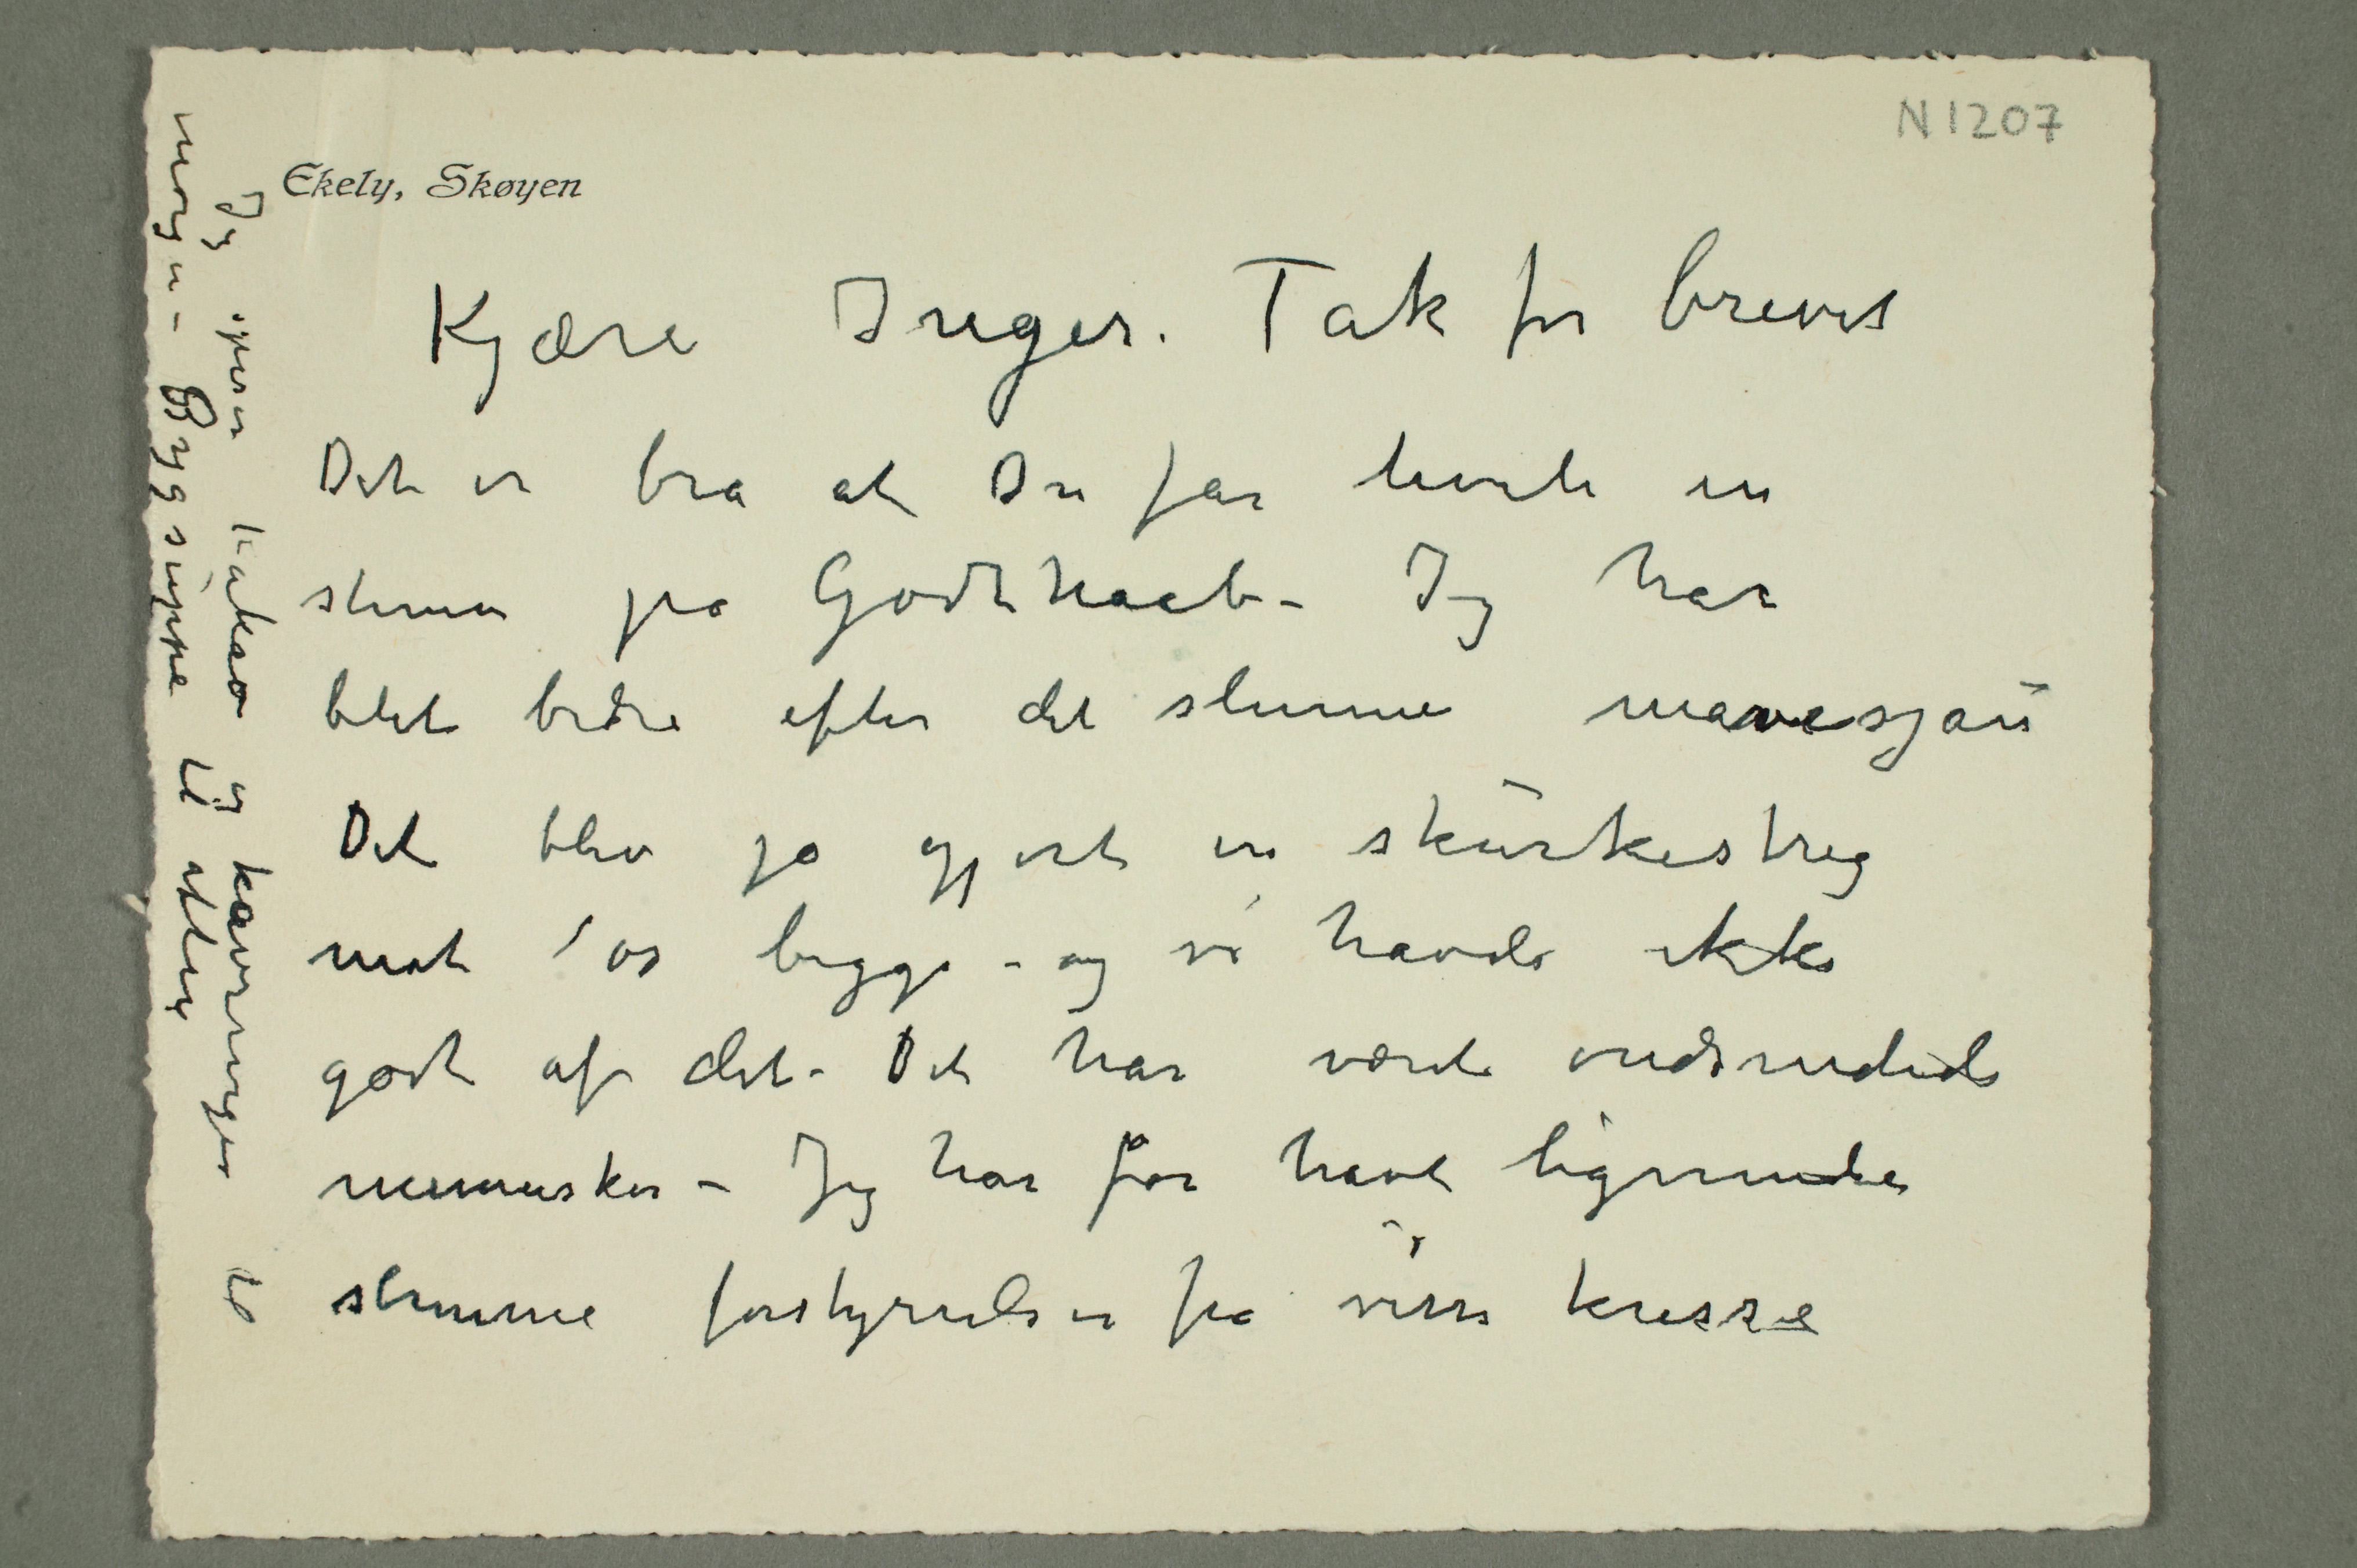 N 1207
Ekely, Skøyen
Kjære Inger. Tak for brevet
Det er bra at Du får hvile en
stund på Godthaab – Jeg har
blet bedre efter det slemme mavesjau
Det blev jo gjort en skurkestreg
mot os begge – og vi havde ikke
godt af det – Det har været ondsindede
mennesker – Jeg har før havt lignende
slemme forstyrrelser fra visse kredse
Jeg spiser kakao og kavringer til
morgen – Bygsuppe til aften